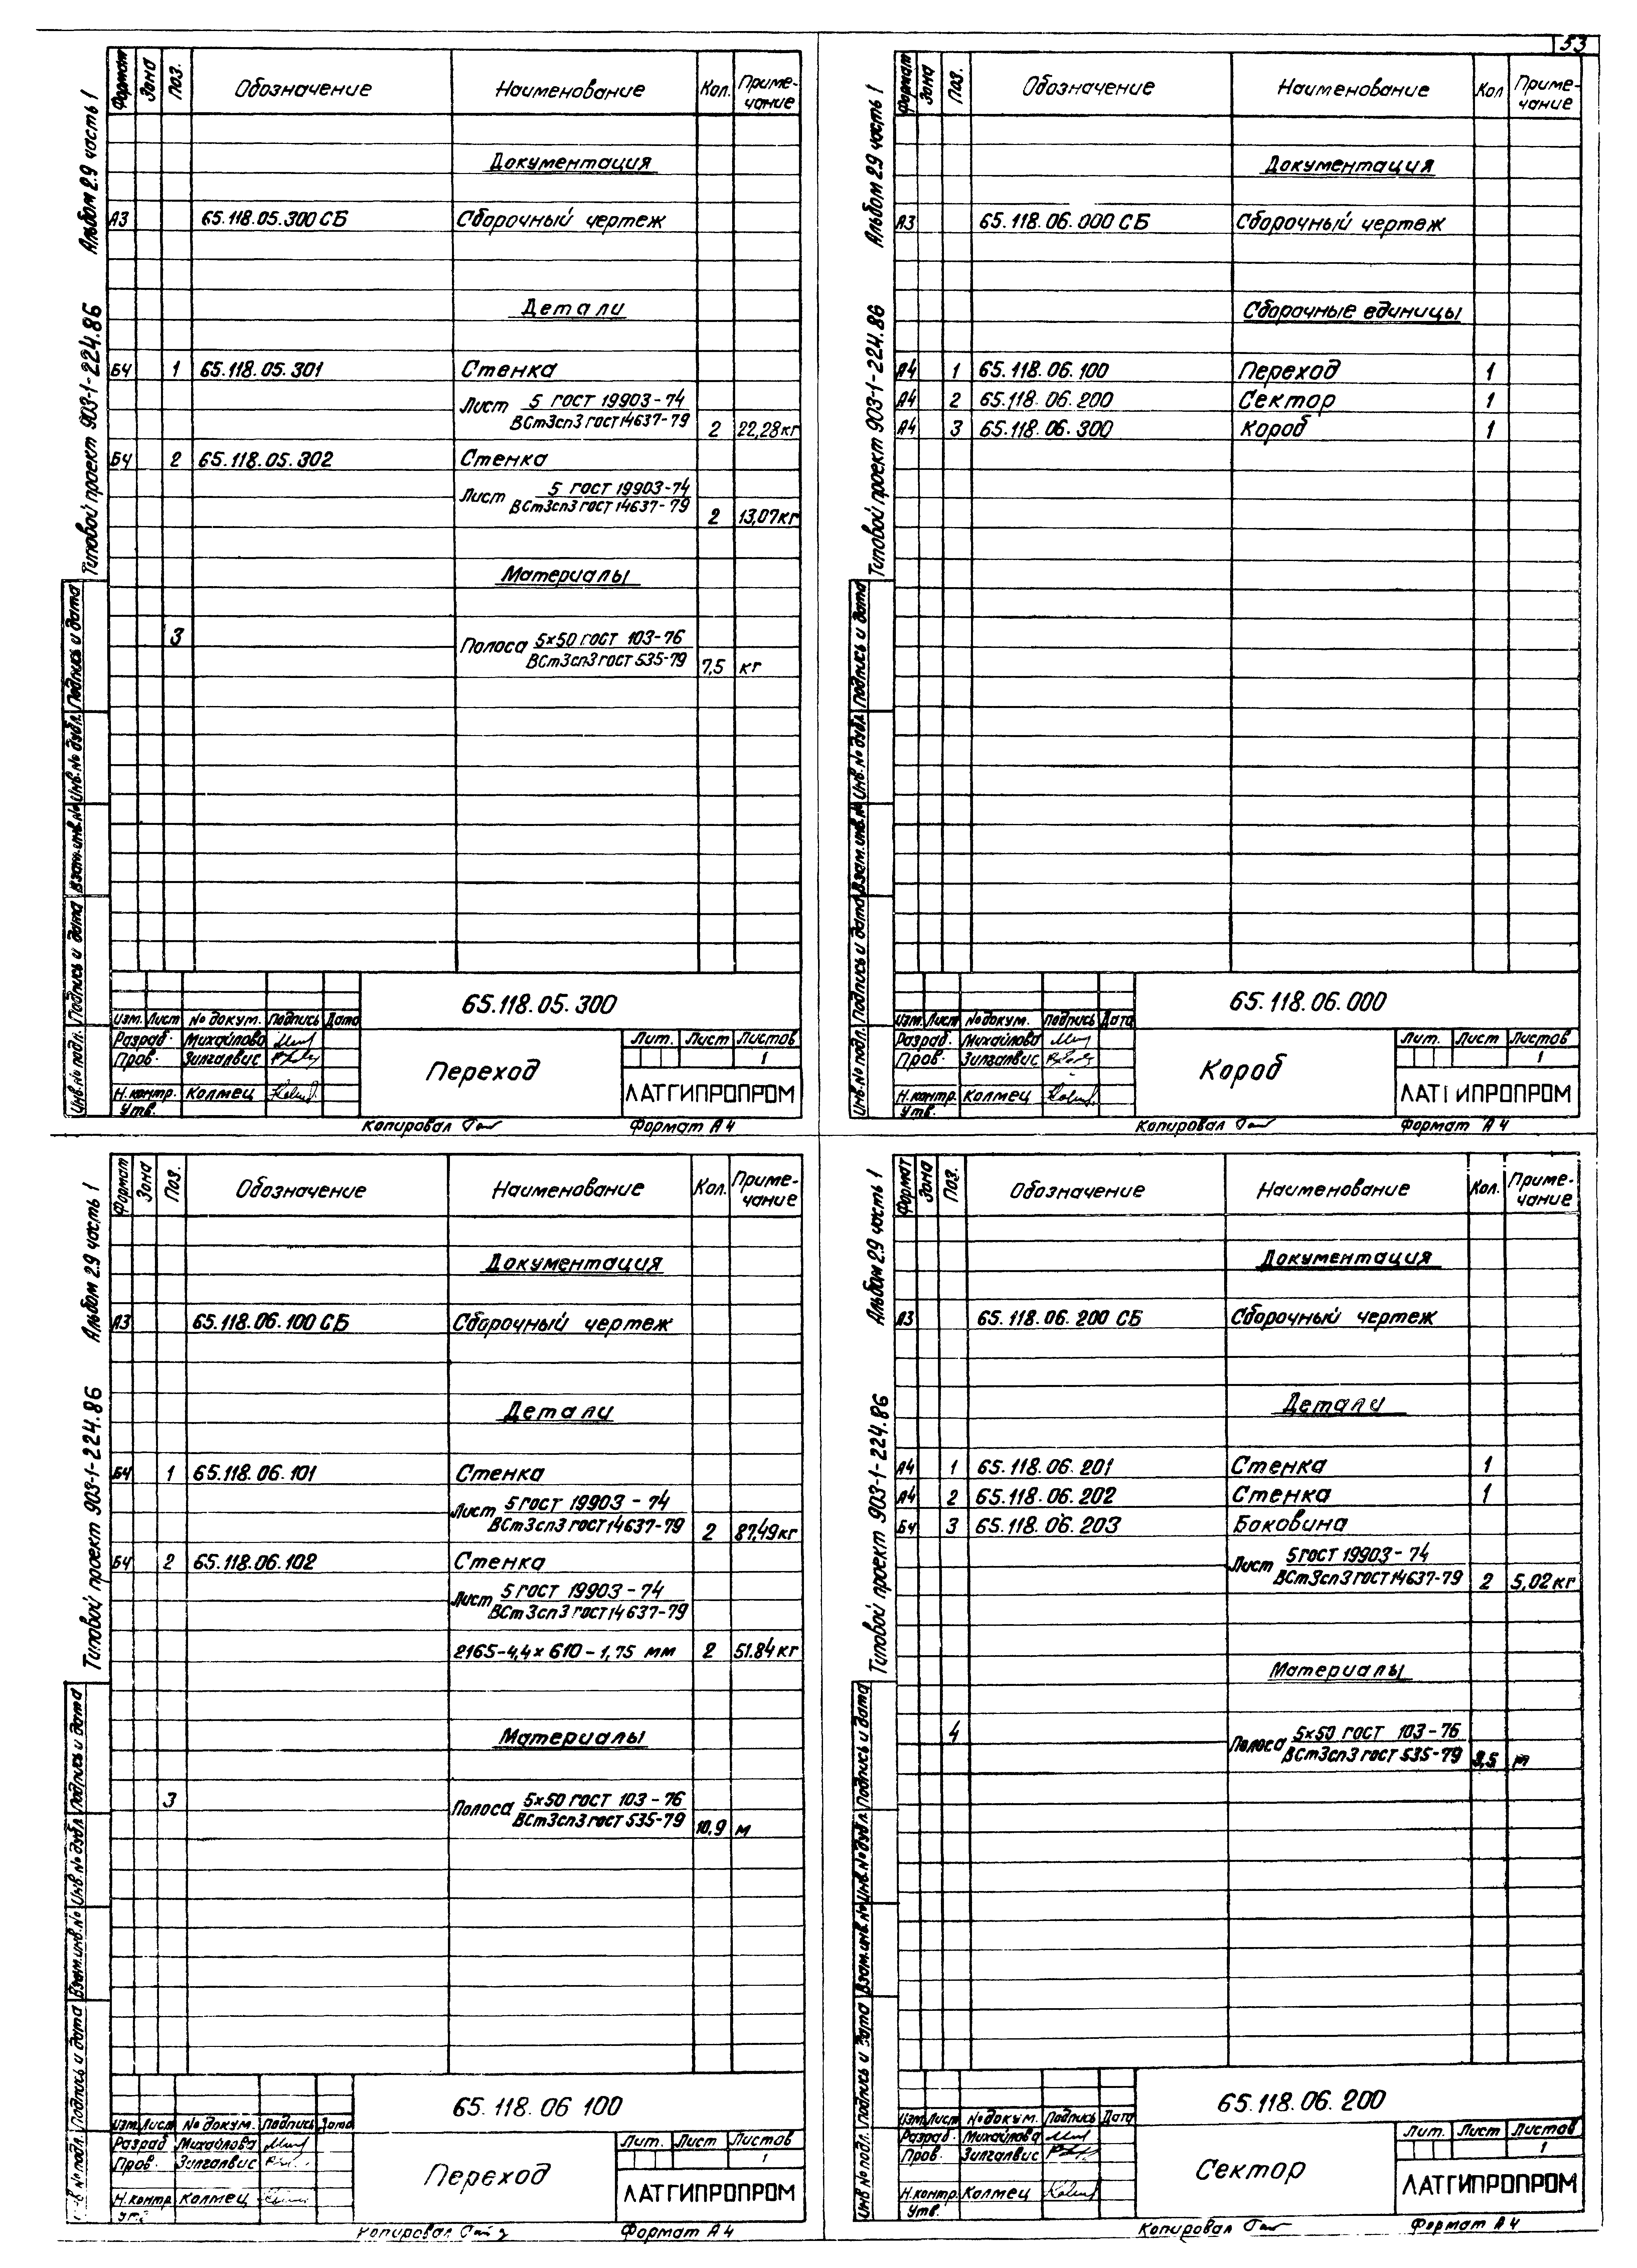 53
Альбом 2.9 часть 1
Типовой проект 903-1-224.86
Инв. № подл. Подпись и дата Взам. инв. № Инв. № дубл. Подпись и дата
Формат Зона Поз. Обозначение Наименование Кол. Приме-
чание
Документация
А3 65.118.05.300 СБ Сборочный чертеж
Детали
БЧ 1 65.118.05.301 Стенка
Лист 5 ГОСТ 19903-74
ВСт3сп3 ГОСТ 14637-79 2 22,28 кг
БЧ 2 65.118.05.302 Стенка
Лист 5 ГОСТ 19903-74
ВСт3сп3 ГОСТ 14637-79 2 13,07 кг
Материалы
3 Полоса 5х50 ГОСТ 103-76
ВСт3сп3 ГОСТ 535-79 7,5 кг
65.118.05.300
Изм. Лист № докум. Подпись Дата
Разраб. Михайлова
Пров. Зилгалвис
Н. контр. Колмец
Утв.
Переход
Лит. Лист Листов
1
ЛАТГИПРОПРОМ
Копировал Формат А4
Альбом 2.9 часть 1
Типовой проект 903-1-224.86
Инв. № подл. Подпись и дата Взам. инв. № Инв. № дубл. Подпись и дата
Формат Зона Поз. Обозначение Наименование Кол Приме-
чание
Документация
А3 65.118.06.000 СБ Сборочный чертеж
Сборочные единицы
А4 1 65.118.06.100 Переход 1
А4 2 65.118.06.200 Сектор 1
А4 3 65.118.06.300 Короб 1
65.118.06.000
Изм. Лист № докум. Подпись Дата
Разраб. Михайлова
Пров. Зилгалвис
Н. контр. Колмец
Утв.
Короб
Лит. Лист Листов
1
ЛАТГИПРОПРОМ
Копировал Формат А4
Альбом 2.9 часть 1
Типовой проект 903-1-224.86
Инв. № подл. Подпись и дата Взам. инв. № Инв. № дубл. Подпись и дата
Формат Зона Поз. Обозначение Наименование Кол. Приме-
чание
Документация
А3 65.118.06.100 СБ Сборочный чертеж
Детали
БЧ 1 65.118.06.101 Стенка
Лист 5 ГОСТ 19903-74
ВСт3сп3 ГОСТ 14637-79 2 87,49 кг
БЧ 2 65.118.06.102 Стенка
Лист 5 ГОСТ 19903-74
ВСт3сп3 ГОСТ 14637-79
2165-4,4х610-1,75 мм 2 51.84 кг
Материалы
3 Полоса 5х50 ГОСТ 103-76
ВСт3сп3 ГОСТ 535-79 10,9 м
65.118.06 100
Изм. Лист № докум. Подпись Дата
Разраб Михайлова
Пров. Зилгалвис
Н. контр Колмец
Утв.
Переход
Лит. Лист Листов
1
ЛАТГИПРОПРОМ
Копировал Формат А4
Альбом 2.9 часть 1
Типовой проект 903-1-224.86
Инв № подл. Подпись и дата Взам. инв. № Инв. № дубл. Подпись и дата
Формат Зона Поз. Обозначение Наименование Кол. Приме-
чание
Документация
А3 65.118.06.200 СБ Сборочный чертеж
Детали
А4 1 65.118.06.201 Стенка 1
А4 2 65.118.06.202 Стенка 1
БЧ 3 65.118.06.203 Боковина
Лист 5 ГОСТ 19903-74
ВСт3сп3 ГОСТ 14637-79 2 5,02 кг
Материалы
4 Полоса 5х50 ГОСТ 103-76
ВСт3сп3 ГОСТ 535-79 м
65.118.06.200
Изм. Лист № докум. Подпись Дата
Разраб. Михайлова
Пров. Зилгалвис
Н. контр. Колмец
Утв.
Сектор
Лит. Лист Листов
1
ЛАТГИПРОПРОМ
Копировал Формат А4